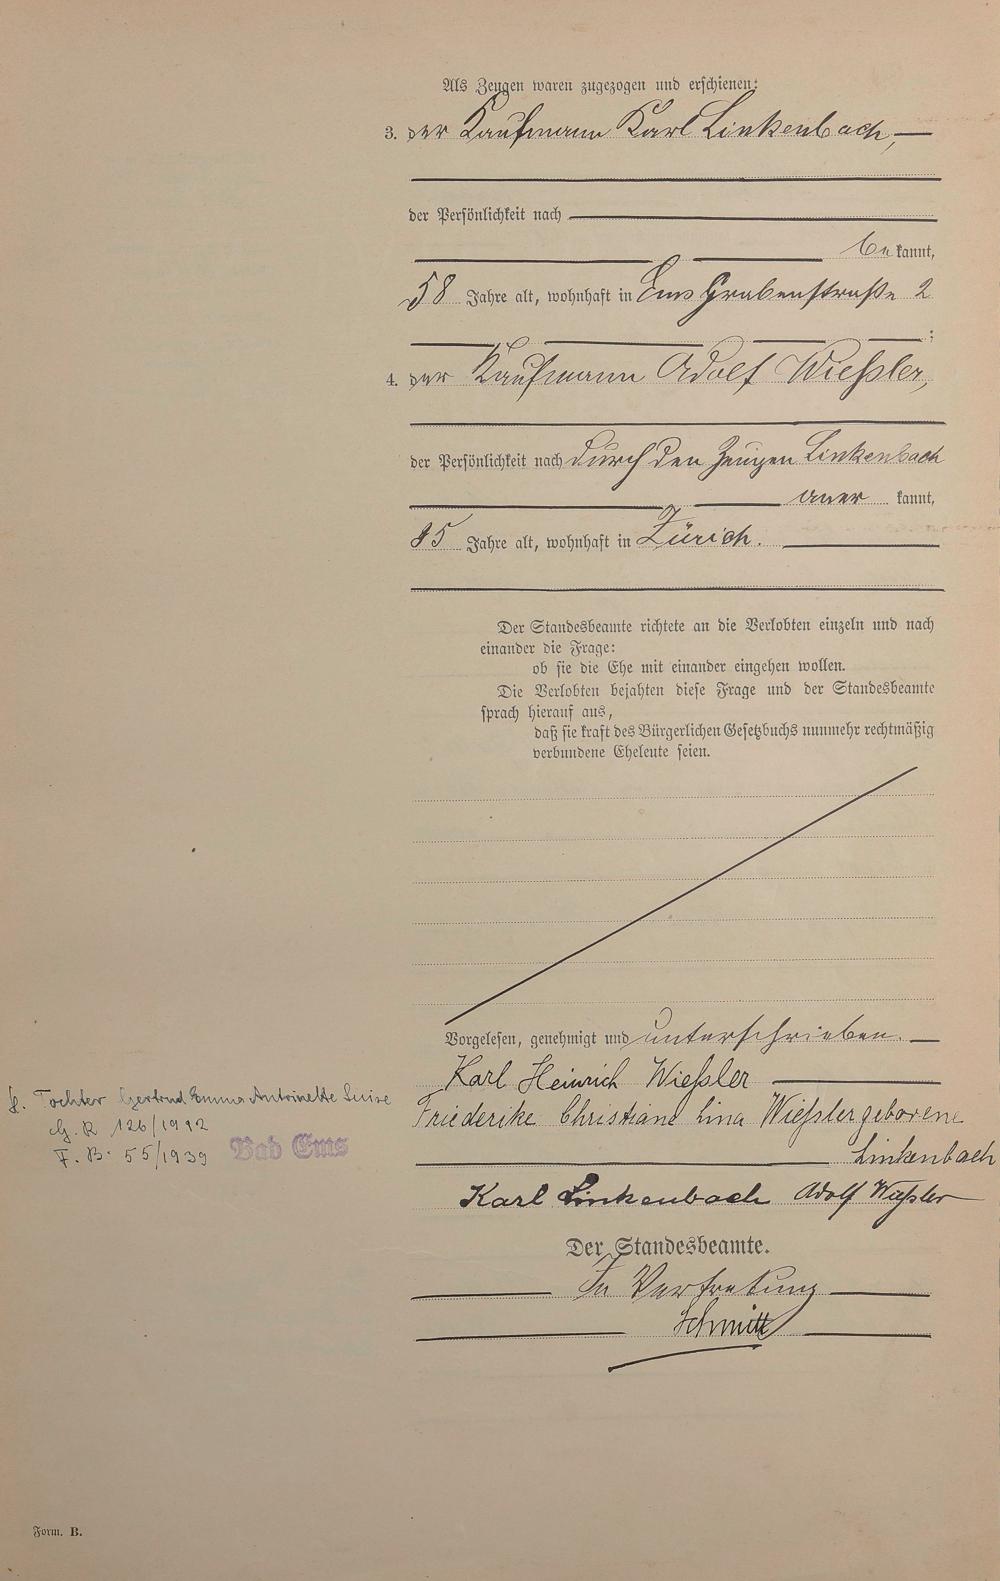 Als Zeugen waren zugezogen und erschienen:
3. der Kaufmann Karl Linkenbach,
der Persönlichkeit nach
be kannt,
58 Jahre alt, wohnhaft in Ems Grabenstraße 2
;
4. der Kaufmann Adolf Wießler,
der Persönlichkeit nach durch den Zeugen Linkenbach
aner kannt,
Jahre alt, wohnhaft in Zürich.
Der Standesbeamte richtete an die Verlobten einzeln und nach
einander die Frage:
ob sie die Ehe mit einander eingehen wollen.
Die Verlobten bejahten diese Frage und der Standesbeamte
sprach hierauf aus,
daß sie kraft des Bürgerlichen Gesetzbuchs nunmehr rechtmäßig
verbundene Eheleute seien.
Vorgelesen, genehmigt und unterschrieben.
Karl Heinrich Wießler
Friederike Christiane Lina Wießler geborene
Linkenbach
Karl Linkenbach Adolf Wießler
Der Standesbeamte.
In Vertretung
Schmitt
Tochter Gertrud Emma Antoinette Luise
G. R 126/1912
F. B. 55/1939 Bad Ems
Form. B.